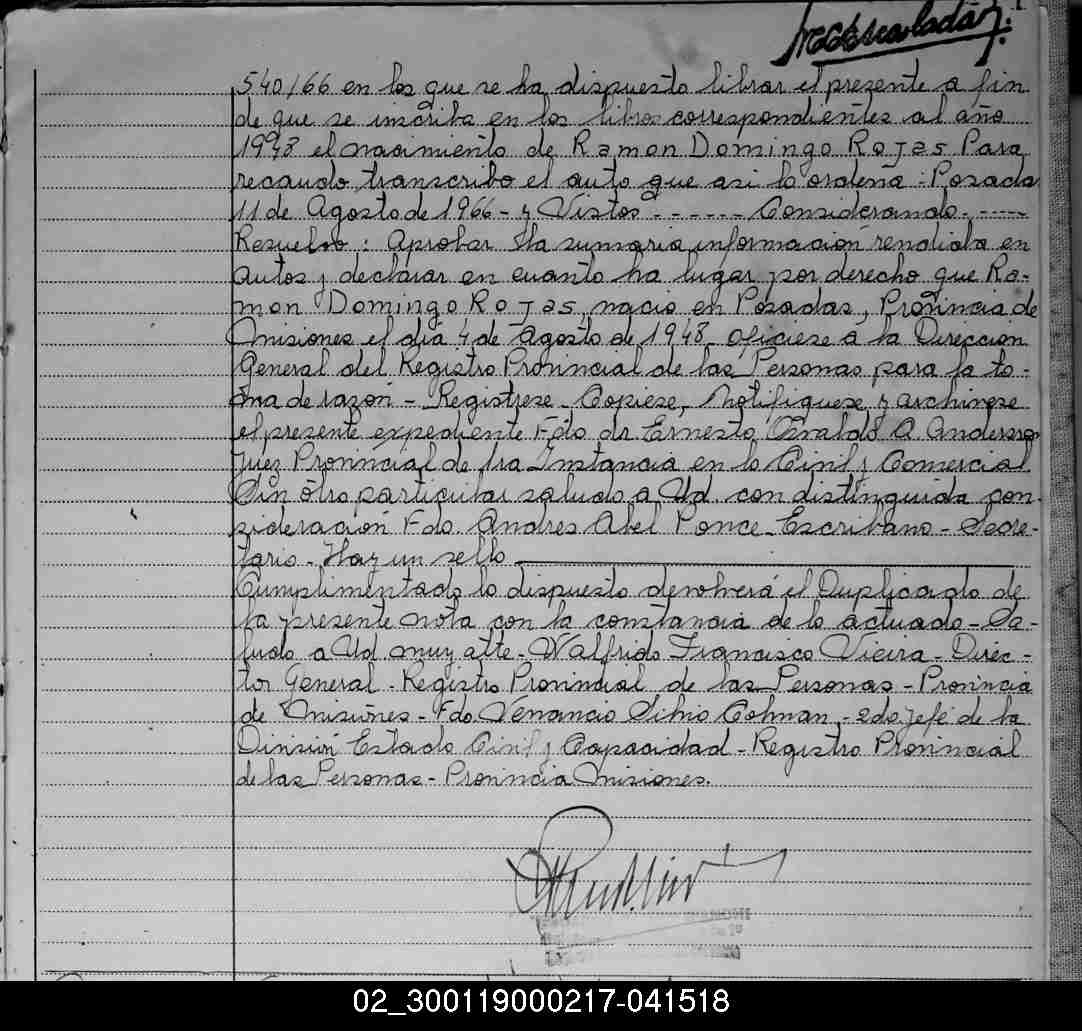 540/66 en los que se ha dispuesto librar el presente a fin
de que se inscriba en los libros correspondientes al año
1948 el nacimiento de Ramon Domingo Rojas Para
recaudo transcribo el auto que asi lo ordena: Posada
11 de Agosto de 1966 - y Vistos - - - - - - Considerando - - - - -
Resuelvo: Aprobar la sumaria informacion rendida en
autos y declarar en cuanto ha lugar por derecho que Ra-
mon Domingo Rojas, nacio en Posadas, Provincia de
Misiones el dia 4 de Agosto de 1948. oficiese a la Direccion
General del Registro Provincial de las Personas para la to-
ma de razon - Registrese - Copiese, Notifiquese y archivese
el presente expediente Fdo dr Ernesto Osvaldo A.
Juez Provincial de 1ra Instancia en lo Civil y Comercial
Sin otro particular saludo a Ud. con distinguida con-
sideracion Fdo. Andres Abel Ponce - Escribano - Secre-
tario - Hay un sello
Cumplimentado lo dispuesto devolverá el Duplicado de
la presente nota con la constancia de lo actuado - Sa-
ludo a Ud muy atte - Walfrido Francisco Vieira - Direc-
tor General - Registro Provincial de las Personas - Provincia
de Misiones - Fdo. Venancio Silvio Colman - 2do. Jefe de la
Division Estado Civil y Capacidad - Registro Provincial
de las Personas - Provincia Misiones.
02_300119000217-041518